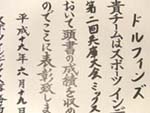 ドルフィンズ
貴チームはスポーツイン
第二回兵庫大会ミックス
おいて頭書の成績を収め
のでここに表彰致しま
平成十六年六月十九